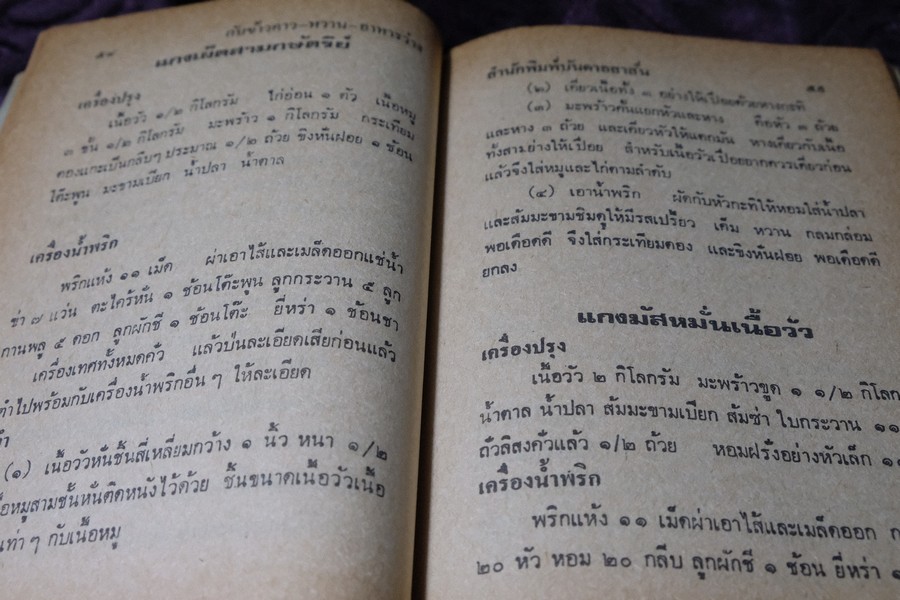 ๕๔
กับข้าวคาว-หวาน-อาหารว่าง
แกงเผ็ดสามกษัตริย์
เครื่องปรุง
เนื้อวัว ๑/๒ กิโลกรัม ไก่อ่อน ๑ ตัว เนื้อหมู
๓ ชั้น ๑/๒ กิโลกรัม มะพร้าว ๑ กิโลกรัม กระเทียม
ดองแกะเป็นกลีบๆ ประมาณ ๑/๒ ถ้วย ขิงหั่นฝอย ๑ ช้อน
โต๊ะพูน มะขามเปียก น้ำปลา น้ำตาล
เครื่องน้ำพริก
พริกแห้ง ๑๑ เม็ด ผ่าเอาไส้และเมล็ดออกแช่น้ำ
ข่า ๗ แว่น ตะไคร้หั่น ๑ ช้อนโต๊ะพูน ลูกกระวาน ๕ ลูก
กานพลู ๕ ดอก ลูกผักชี ๑ ช้อนโต๊ะ ยี่หร่า ๑ ช้อนชา
เครื่องเทศทั้งหมดคั่ว แล้วป่นละเอียดเสียก่อนแล้ว
ตำไปพร้อมกับเครื่องน้ำพริกอื่นๆ ให้ละเอียด
ทำ
(๑) เนื้อวัวหั่นชิ้นสี่เหลี่ยมกว้าง ๑ นิ้ว หนา ๑/๒
หมูสามชั้นหั่นติดหนังไว้ด้วย ชิ้นขนาดเนื้อวัวเนื้อ
เท่าๆ กับเนื้อหมู
สำนักพิมพ์บันดาลสาส์น
๕๕
(๒) เคี่ยวเนื้อทั้ง ๓ อย่างให้เปื่อยด้วยหางกะทิ
(๓) มะพร้าวคั้นแยกหัวและหาง คือหัว ๓ ถ้วย
และหาง ๓ ถ้วย และเคี่ยวหัวให้แตกมัน หางเคี่ยวกับเนื้อ
ทั้งสามอย่างให้เปื่อย สำหรับเนื้อวัวเปื่อยยากควรเคี่ยวก่อน
แล้วจึงใส่หมูและไก่ตามลำดับ
(๔) เอาน้ำพริก ผัดกับหัวกะทิให้หอมใส่น้ำปลา
และส้มมะขามชิมดูให้มีรสเปรี้ยว เค็ม หวาน กลมกล่อม
พอเดือดดี จึงใส่กระเทียมดอง และขิงหั่นฝอย พอเดือดดี
ยกลง
แกงมัสหมั่นเนื้อวัว
เครื่องปรุง
เนื้อวัว ๒ กิโลกรัม มะพร้าวขูด ๑ ๑/๒ กิโล
น้ำตาล น้ำปลา ส้มมะขามเปียก ส้มซ่า ใบกระวาน ๑๑
ถั่วลิสงคั่วแล้ว ๑/๒ ถ้วย หอมฝรั่งอย่างหัวเล็ก ๑
เครื่องน้ำพริก
พริกแห้ง ๑๑ เม็ดผ่าเอาไส้และเมล็ดออก
๒๐ หัว หอม ๒๐ กลีบ ลูกผักชี ๑ ช้อน ยี่หร่า ๑